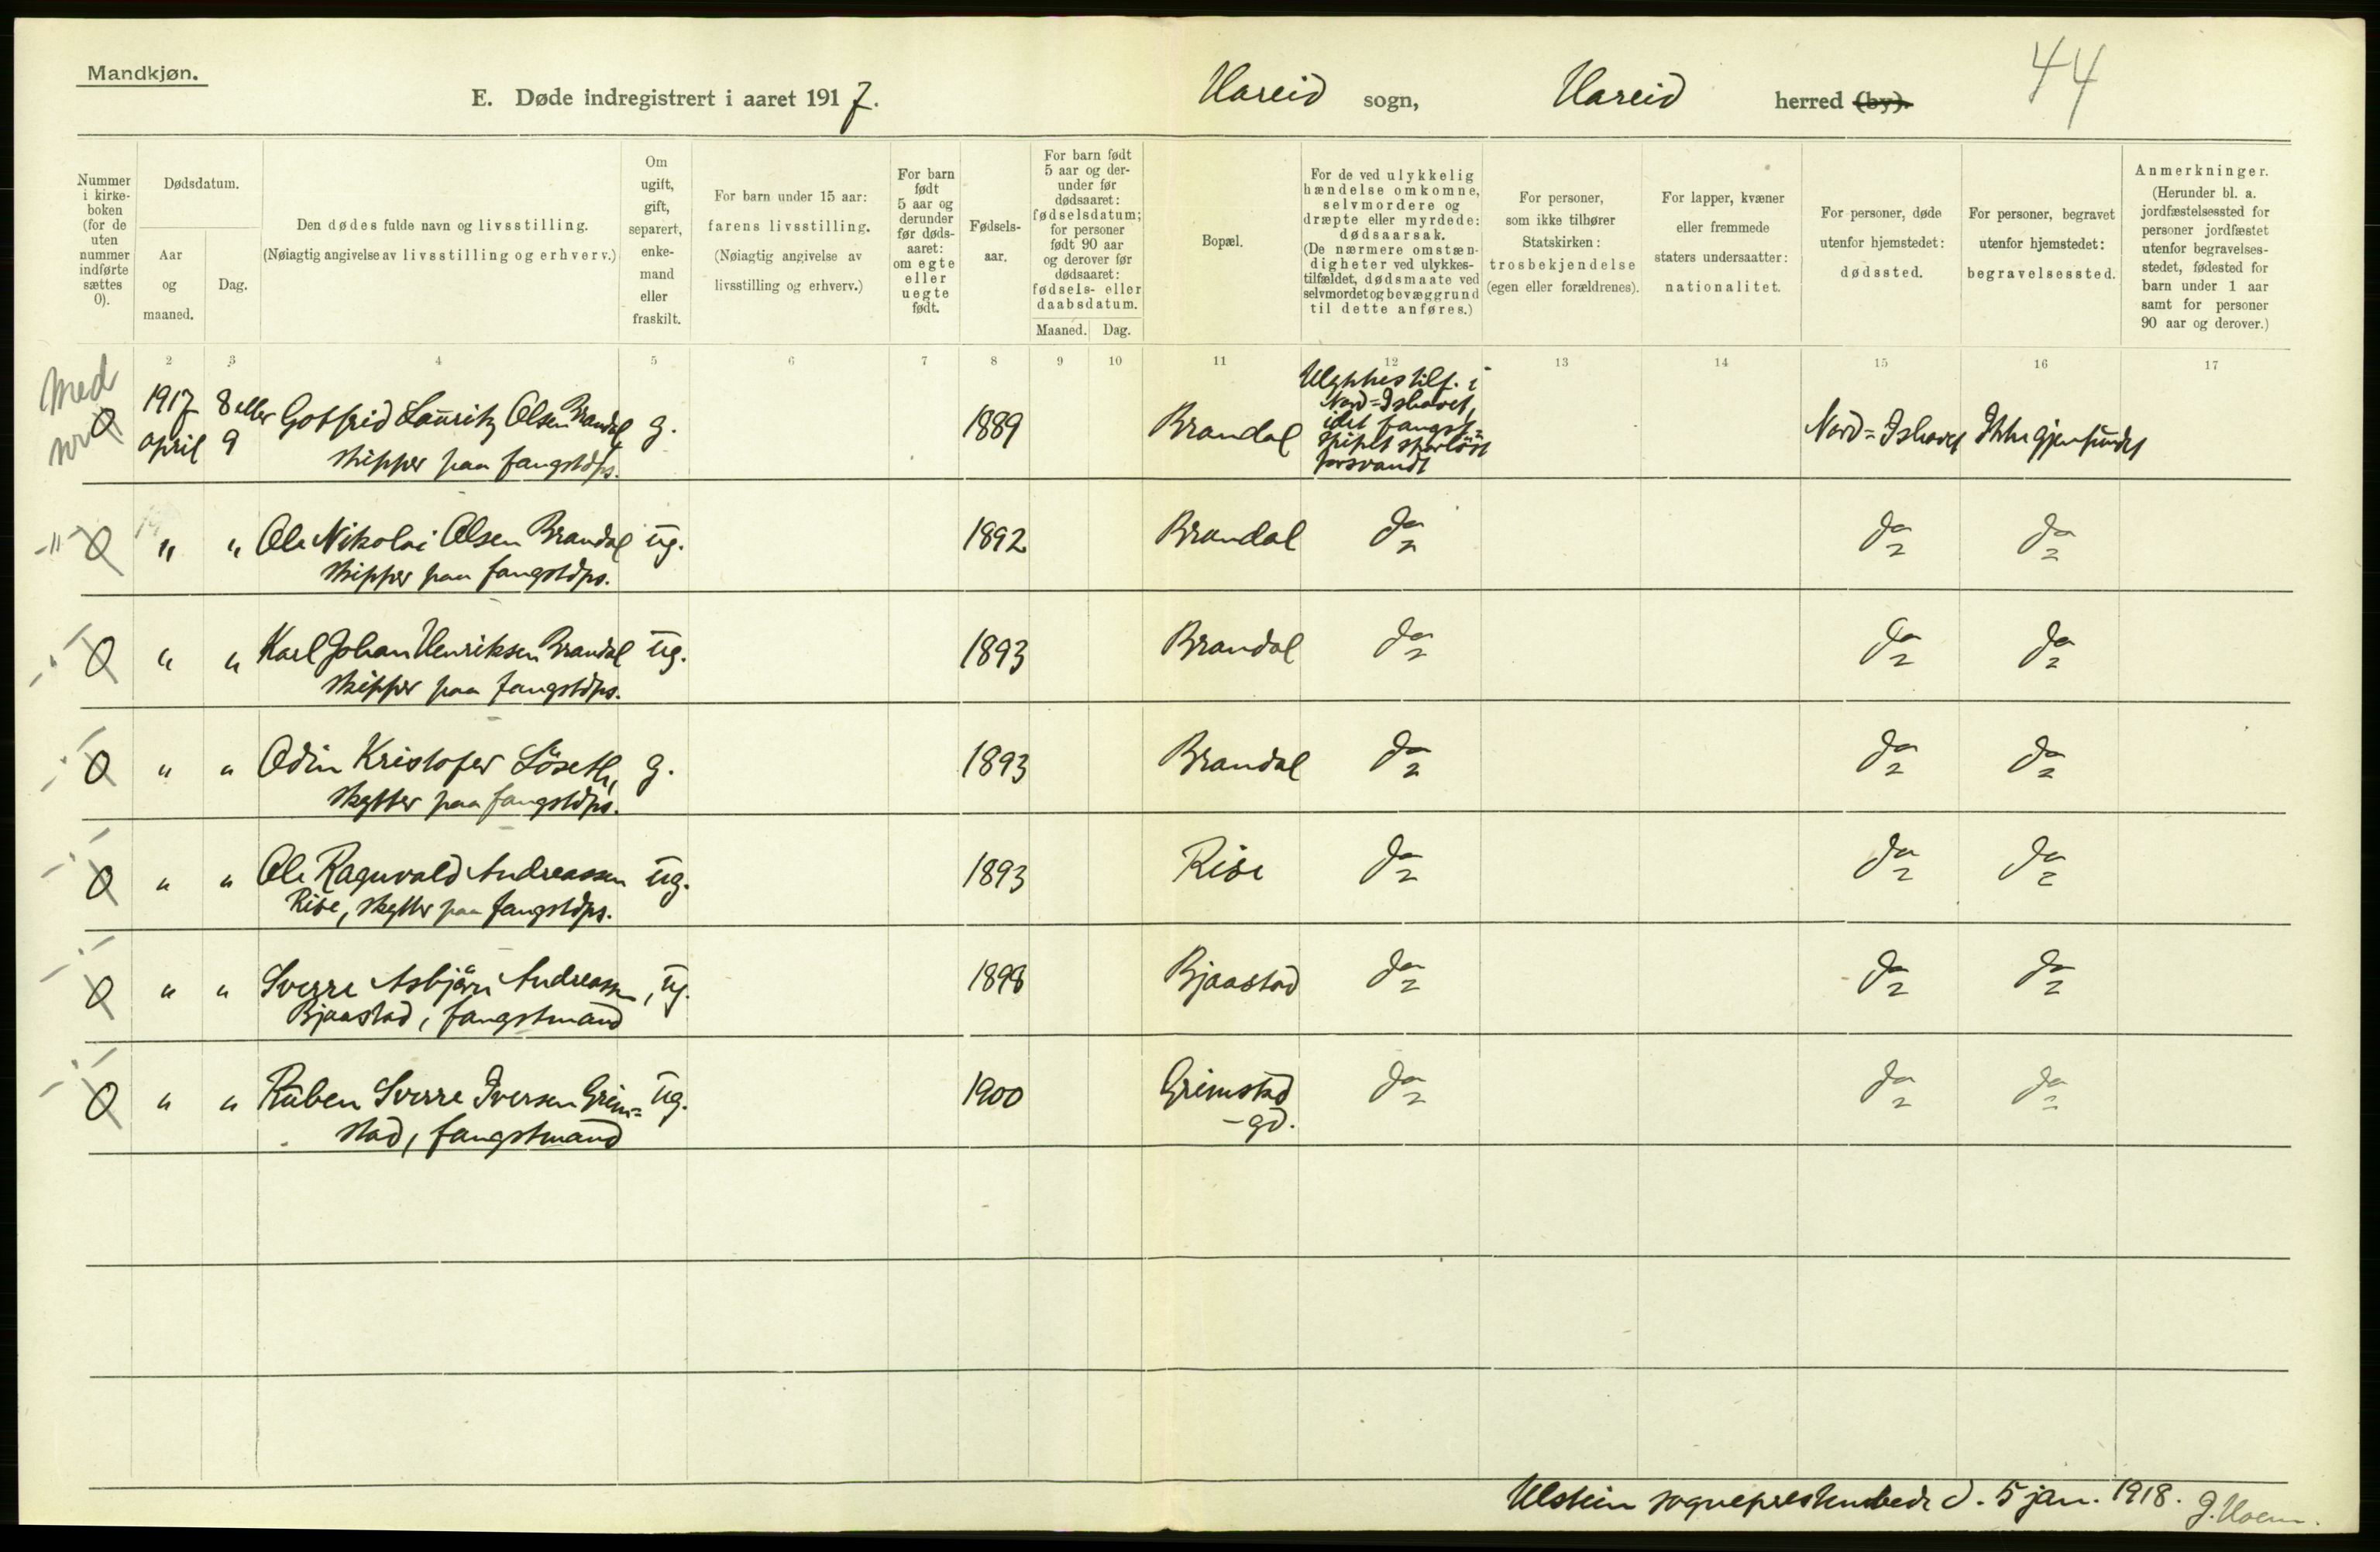 Mandkjøn.
E. Døde indregistrert i aaret 1917.
Hareid sogn, Hareid herred (by).
44
Nummer i kirke-boken (for de uten nummer indførte sættes 0).
Dødsdatum.
Aar og maaned.
Dag.
Den dødes fulde navn og livsstilling.
(Nøiagtig angivelse av livsstilling og erhverv.)
Om ugift, gift, separert, enke-mand eller fraskilt.
For barn under 15 aar:
farens livsstilling.
(Nøiagtig angivelse av livsstilling og erhverv.)
For barn født 5 aar og derunder før døds-aaret: om egte eller uegte født.
Fødsels-aar.
For barn født 5 aar og der-under før dødsaaret: fødselsdatum; for personer født 90 aar og derover før dødsaaret: fødsels- eller daabsdatum.
Maaned. Dag.
Bopæl.
For de ved ulykkelig hændelse omkomne, selvmordere og dræpte eller myrdede: dødsaarsak.
(De nærmere omstæn-digheter ved ulykkes-tilfældet, dødsmaate ved selvmordet og bevæggrund til dette anføres.)
For personer, som ikke tilhører Statskirken:
trosbekjendelse
(egen eller forældrenes).
For lapper, kvæner eller fremmede staters undersaatter:
nationalitet.
For personer, døde utenfor hjemstedet:
dødssted.
For personer, begravet utenfor hjemstedet:
begravelsessted.
Anmerkninger.
(Herunder bl. a. jordfæstelsessted for personer jordfæstet utenfor begravelses-stedet, fødested for barn under 1 aar samt for personer 90 aar og derover.)
2 3 4 5 6 7 8 9 10 11 12 13 14 15 16 17
Med
0 1917 april 8 eller 9 Gotfrid Lauritz Olsen Brandal, g. 1889 Brandal Ulykkestilf. i Nord=Ishavet, idet fangst=skipet sporløst forsvandt Nord=Ishavet Ikke gjenfundet
skipper paa fangstdps.
-"- 0 " " Ole Nikolai Olsen Brandal ug. 1892 Brandal Do Do Do
skipper paa fangstdps.
0 " " Karl Johan Henriksen Brandal ug. 1893 Brandal Do Do Do
skipper paa fangstdps.
0 " " Odin Kristofer Löseth, g. 1893 Brandal Do Do Do
skytter paa fangstdps.
0 " " Ole Ragnvald Andreassen ug. 1893 Rise Do Do Do
Rise, skytter paa fangstdps.
0 " " Sverre Asbjörn Andreassen, ug. 1898 Bjaastad Do Do Do
Bjaastad, fangstmand
0 " " Ruben Sverre Iversen Grim= ug. 1900 Grimstad Do Do Do
stad, fangstmand -gd.
Ulstein sogneprestembede d. 5 jan. 1918.